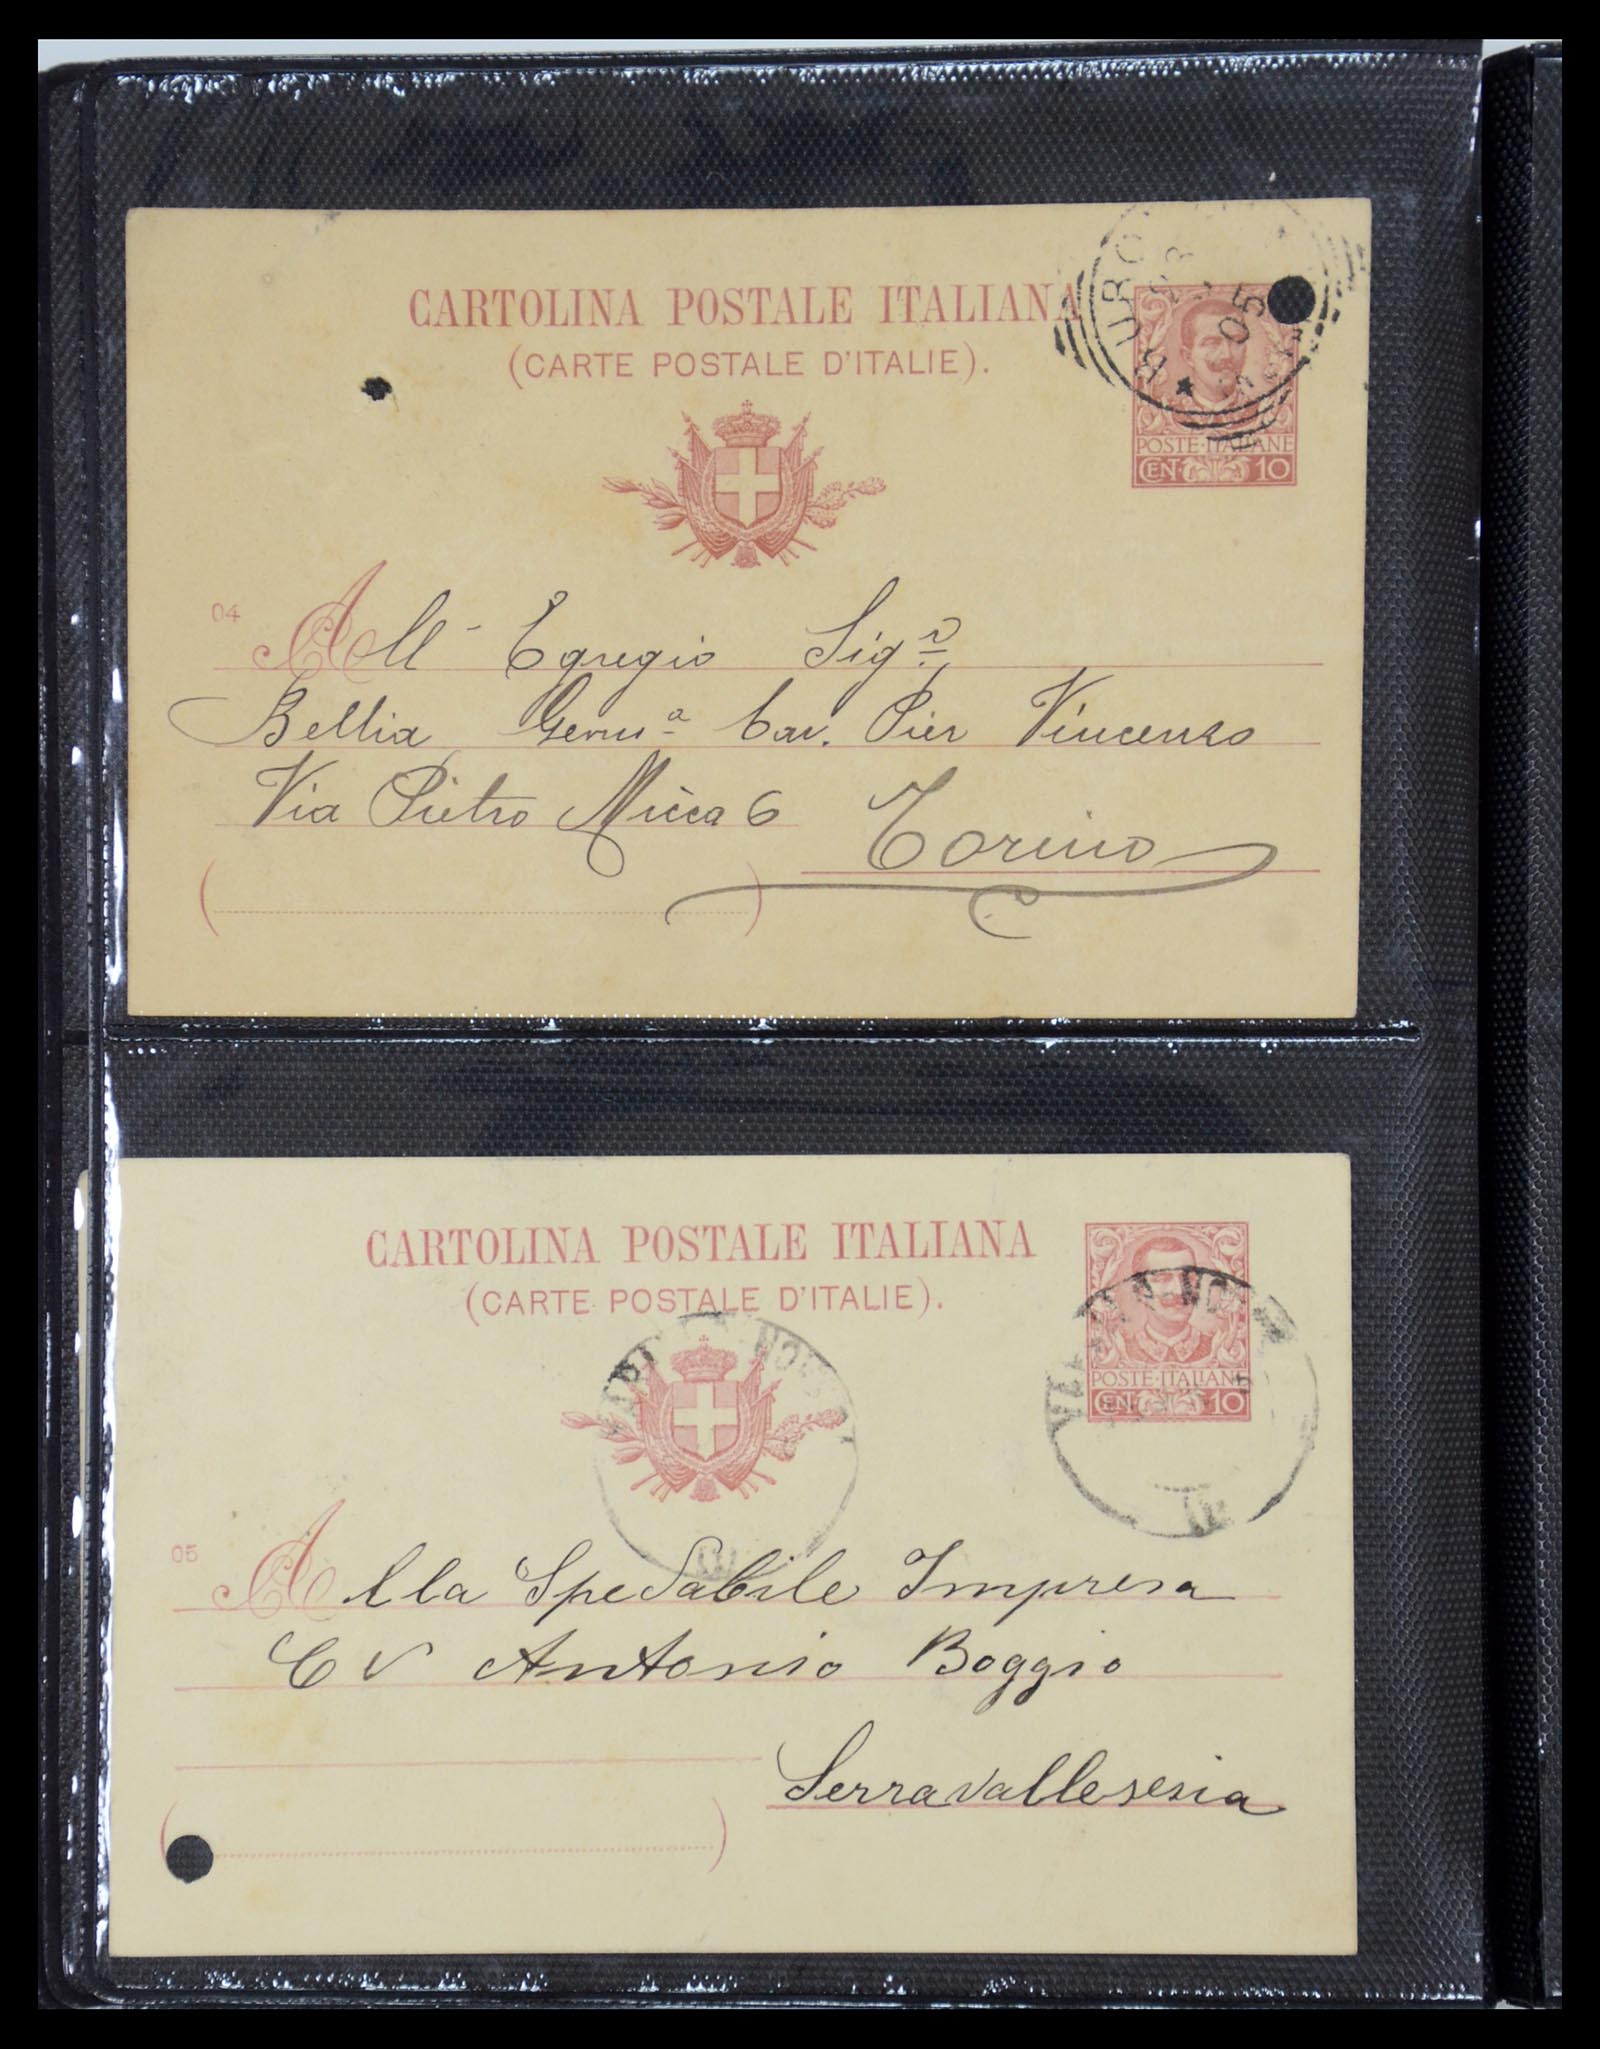 CARTOLINA POSTALE ITALIANA
(CARTE POSTALE D'ITALIE).
05
POSTE·ITALIANE
CEN. 10
04
All' Egregio Sigr
Bellia Cav. Pier Vincenzo
Via Pietro Micca 6 Torino
( )
CARTOLINA POSTALE ITALIANA
(CARTE POSTALE D'ITALIE).
POSTE·ITALIANE
CEN. 10
05
Alla Spedabile Impresa
CV Antonio Boggio
Serravallesesia
( )